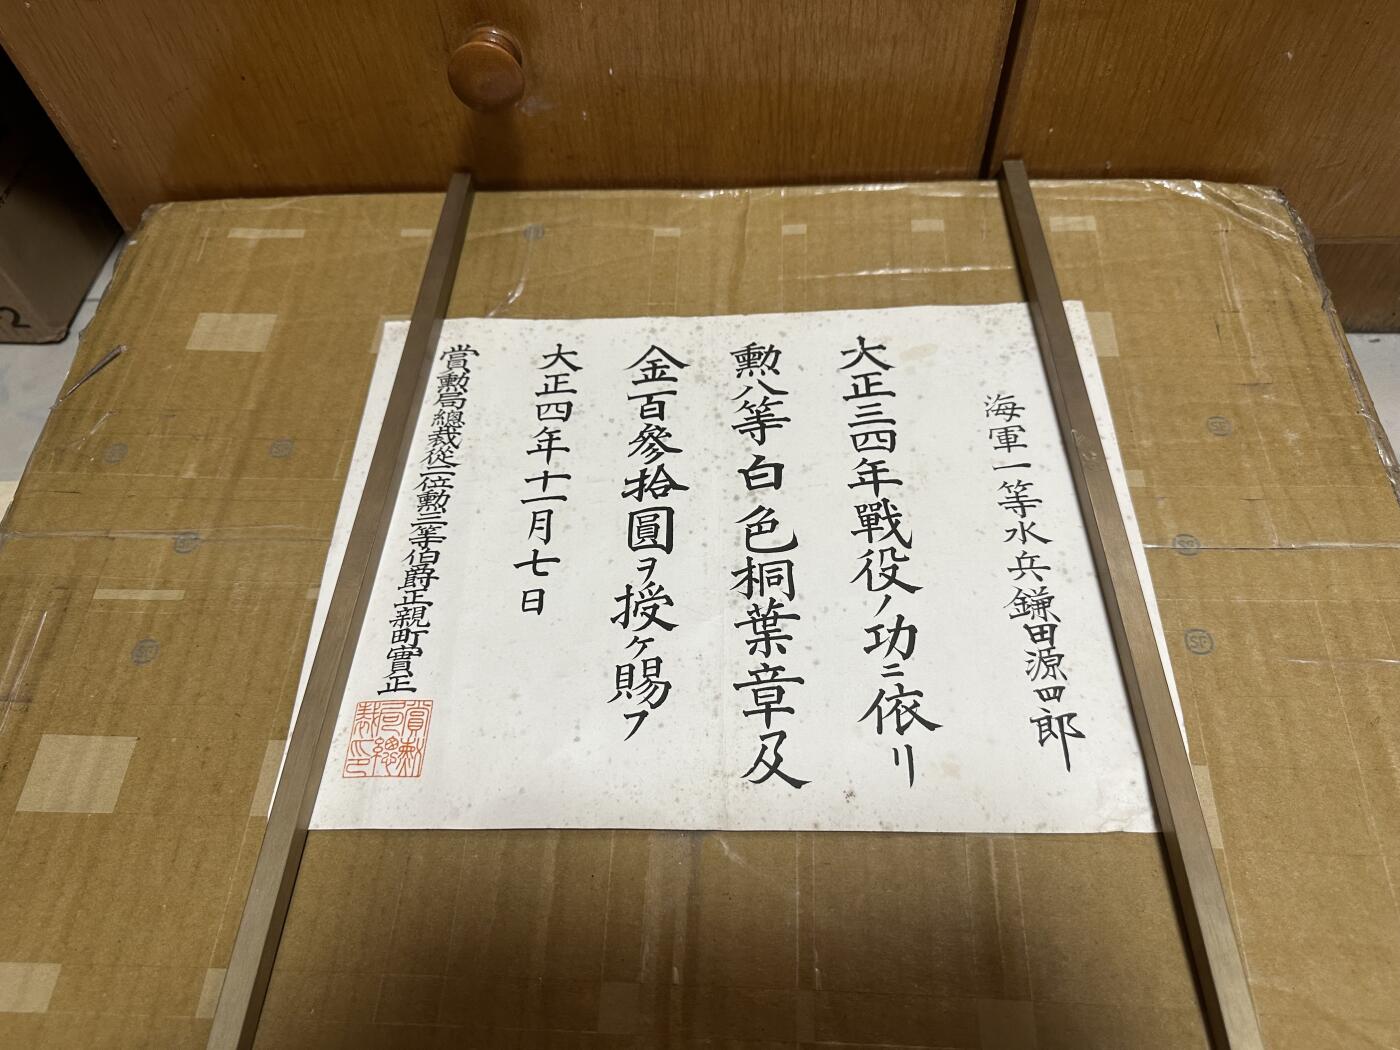 海軍一等水兵鎌田源四郎
大正三四年戰役ノ功ニ依リ
勲八等白色桐葉章及
金百參拾圓ヲ授ケ賜フ
大正四年十一月七日
賞勲局總裁從二位勲三等伯爵正親町實正
賞勲
局總
裁印